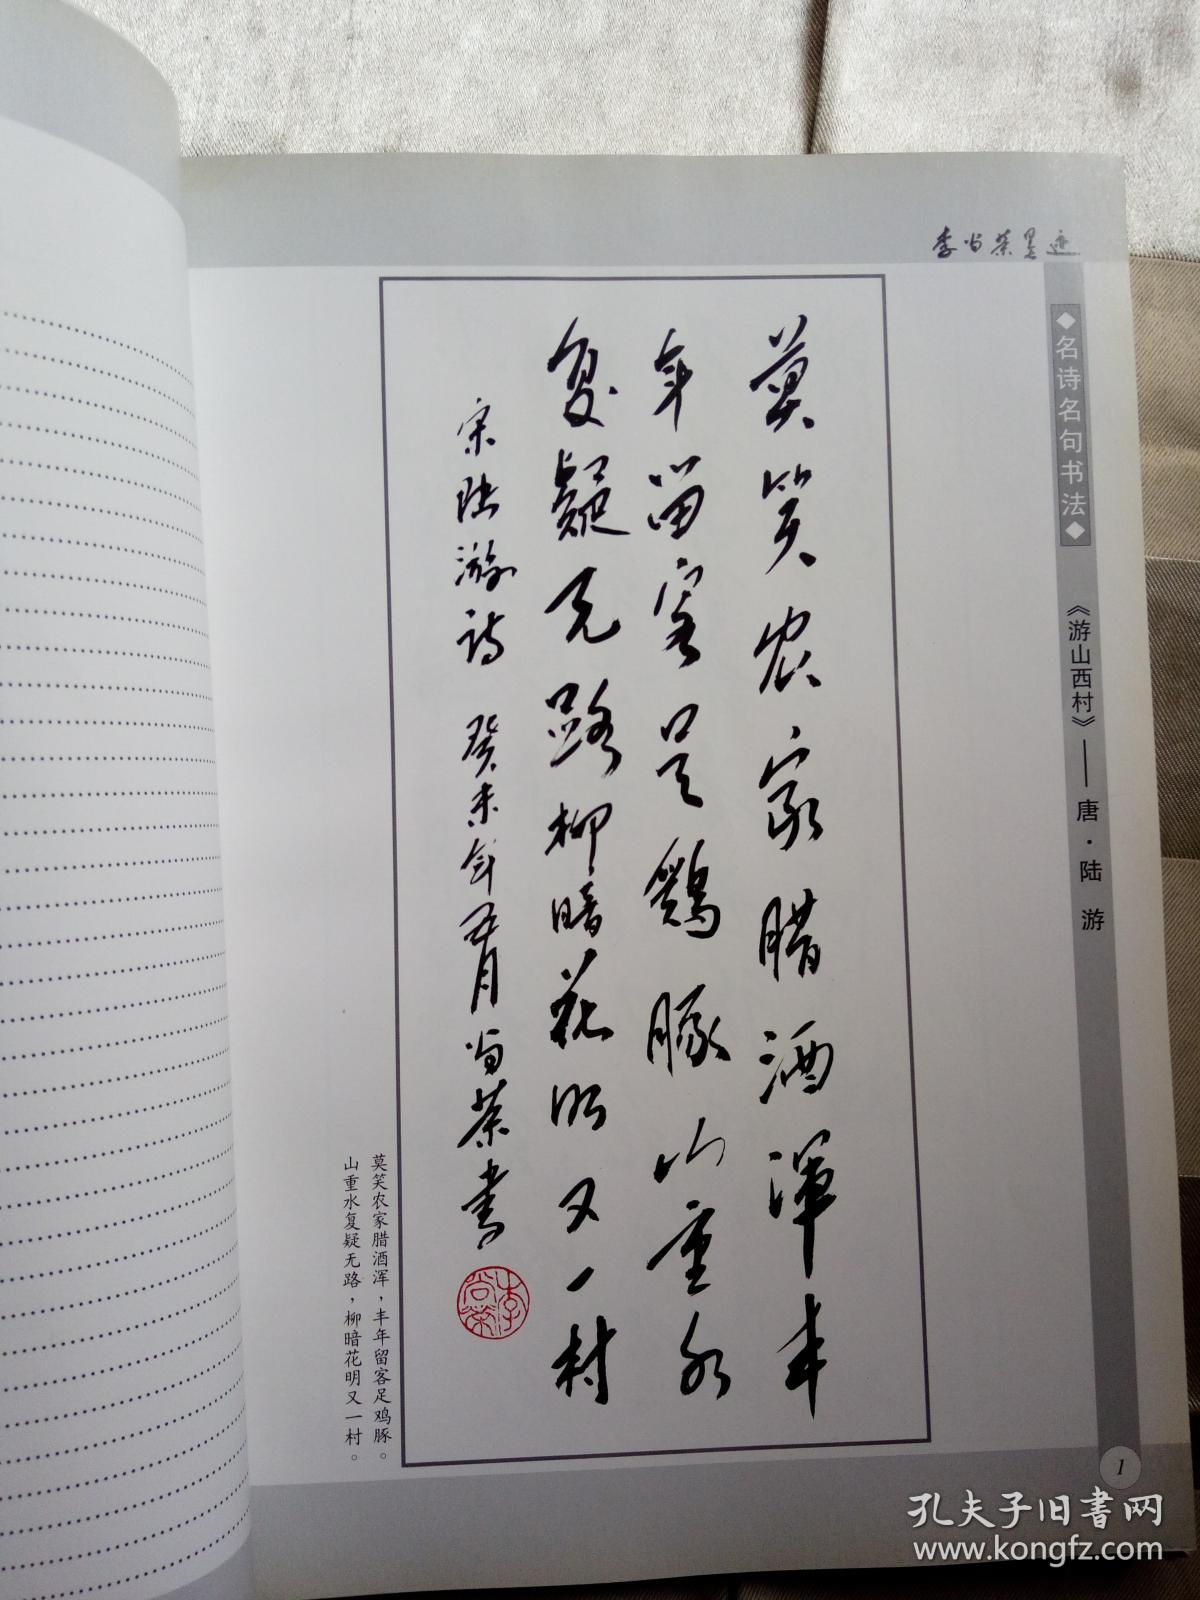 李尚荣墨迹
◆名诗名句书法◆
《游山西村》——唐·陆 游
莫笑农家腊酒浑丰
年留客足鸡豚山重水
复疑无路柳暗花明又一村
宋陆游诗 癸未年五月尚荣书
莫笑农家腊酒浑，丰年留客足鸡豚。
山重水复疑无路，柳暗花明又一村。
1
孔夫子旧书网
www.kongfz.com